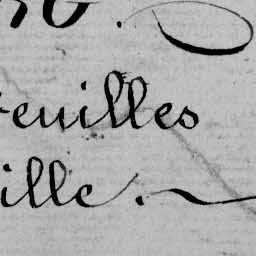 feuilles
ille.